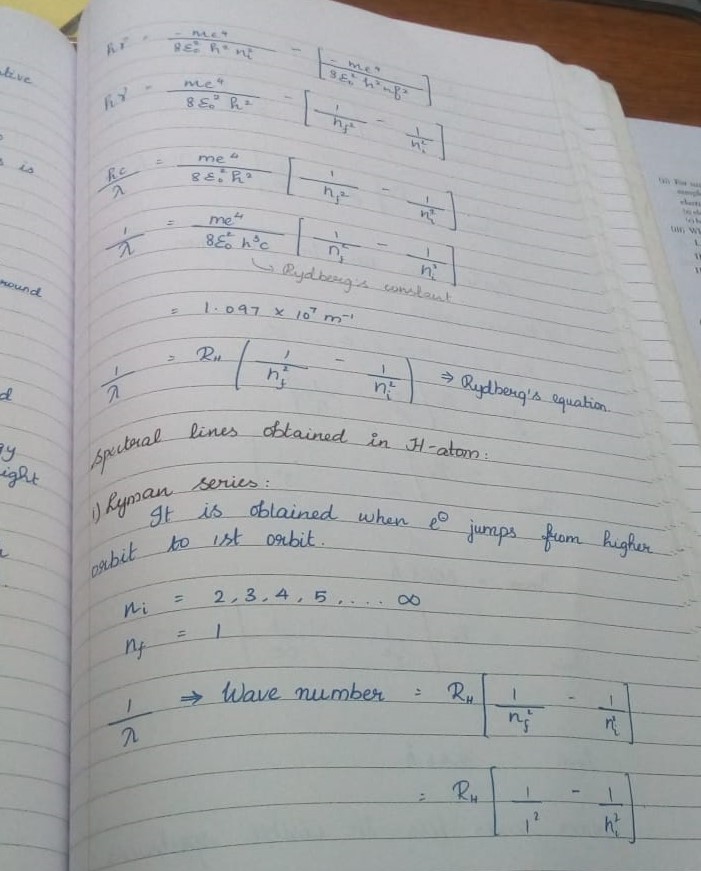 hν = -me⁴/8ε₀² h² nᵢ² - [-me⁴/8ε₀² h² nf²]
hν = me⁴/8ε₀² h² - [1/nf² - 1/nᵢ²]
hc/λ = me⁴/8ε₀² h² [1/nf² - 1/nᵢ²]
1/λ = me⁴/8ε₀² h³c [1/nf² - 1/nᵢ²]
↳ Rydberg's constant
= 1.097 × 10⁷ m⁻¹
1/λ = R_H (1/nf² - 1/nᵢ²) ⇒ Rydberg's equation
Spectral lines obtained in H-atom:
1) Lyman series:
It is obtained when e⊖ jumps from higher
orbit to 1st orbit.
nᵢ = 2, 3, 4, 5, ... ∞
nf = 1
1/λ ⇒ Wave number = R_H [1/nf² - 1/nᵢ²]
= R_H [1/1² - 1/nᵢ²]
is
round
d
ight